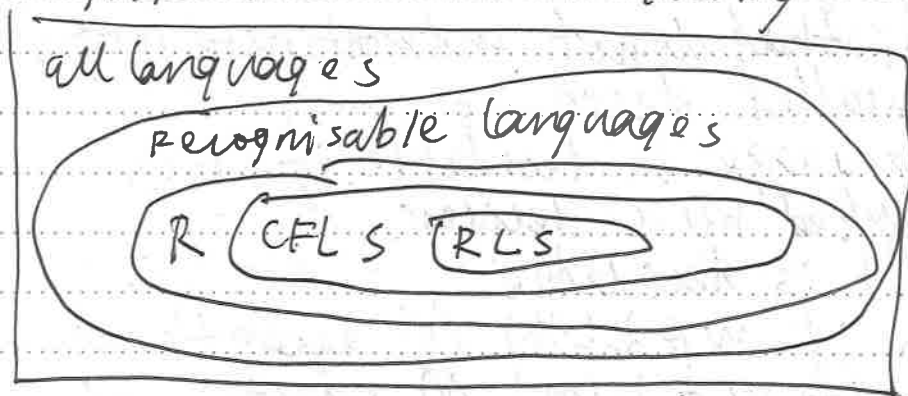 all languages
recognisable languages
R CFLS RLS